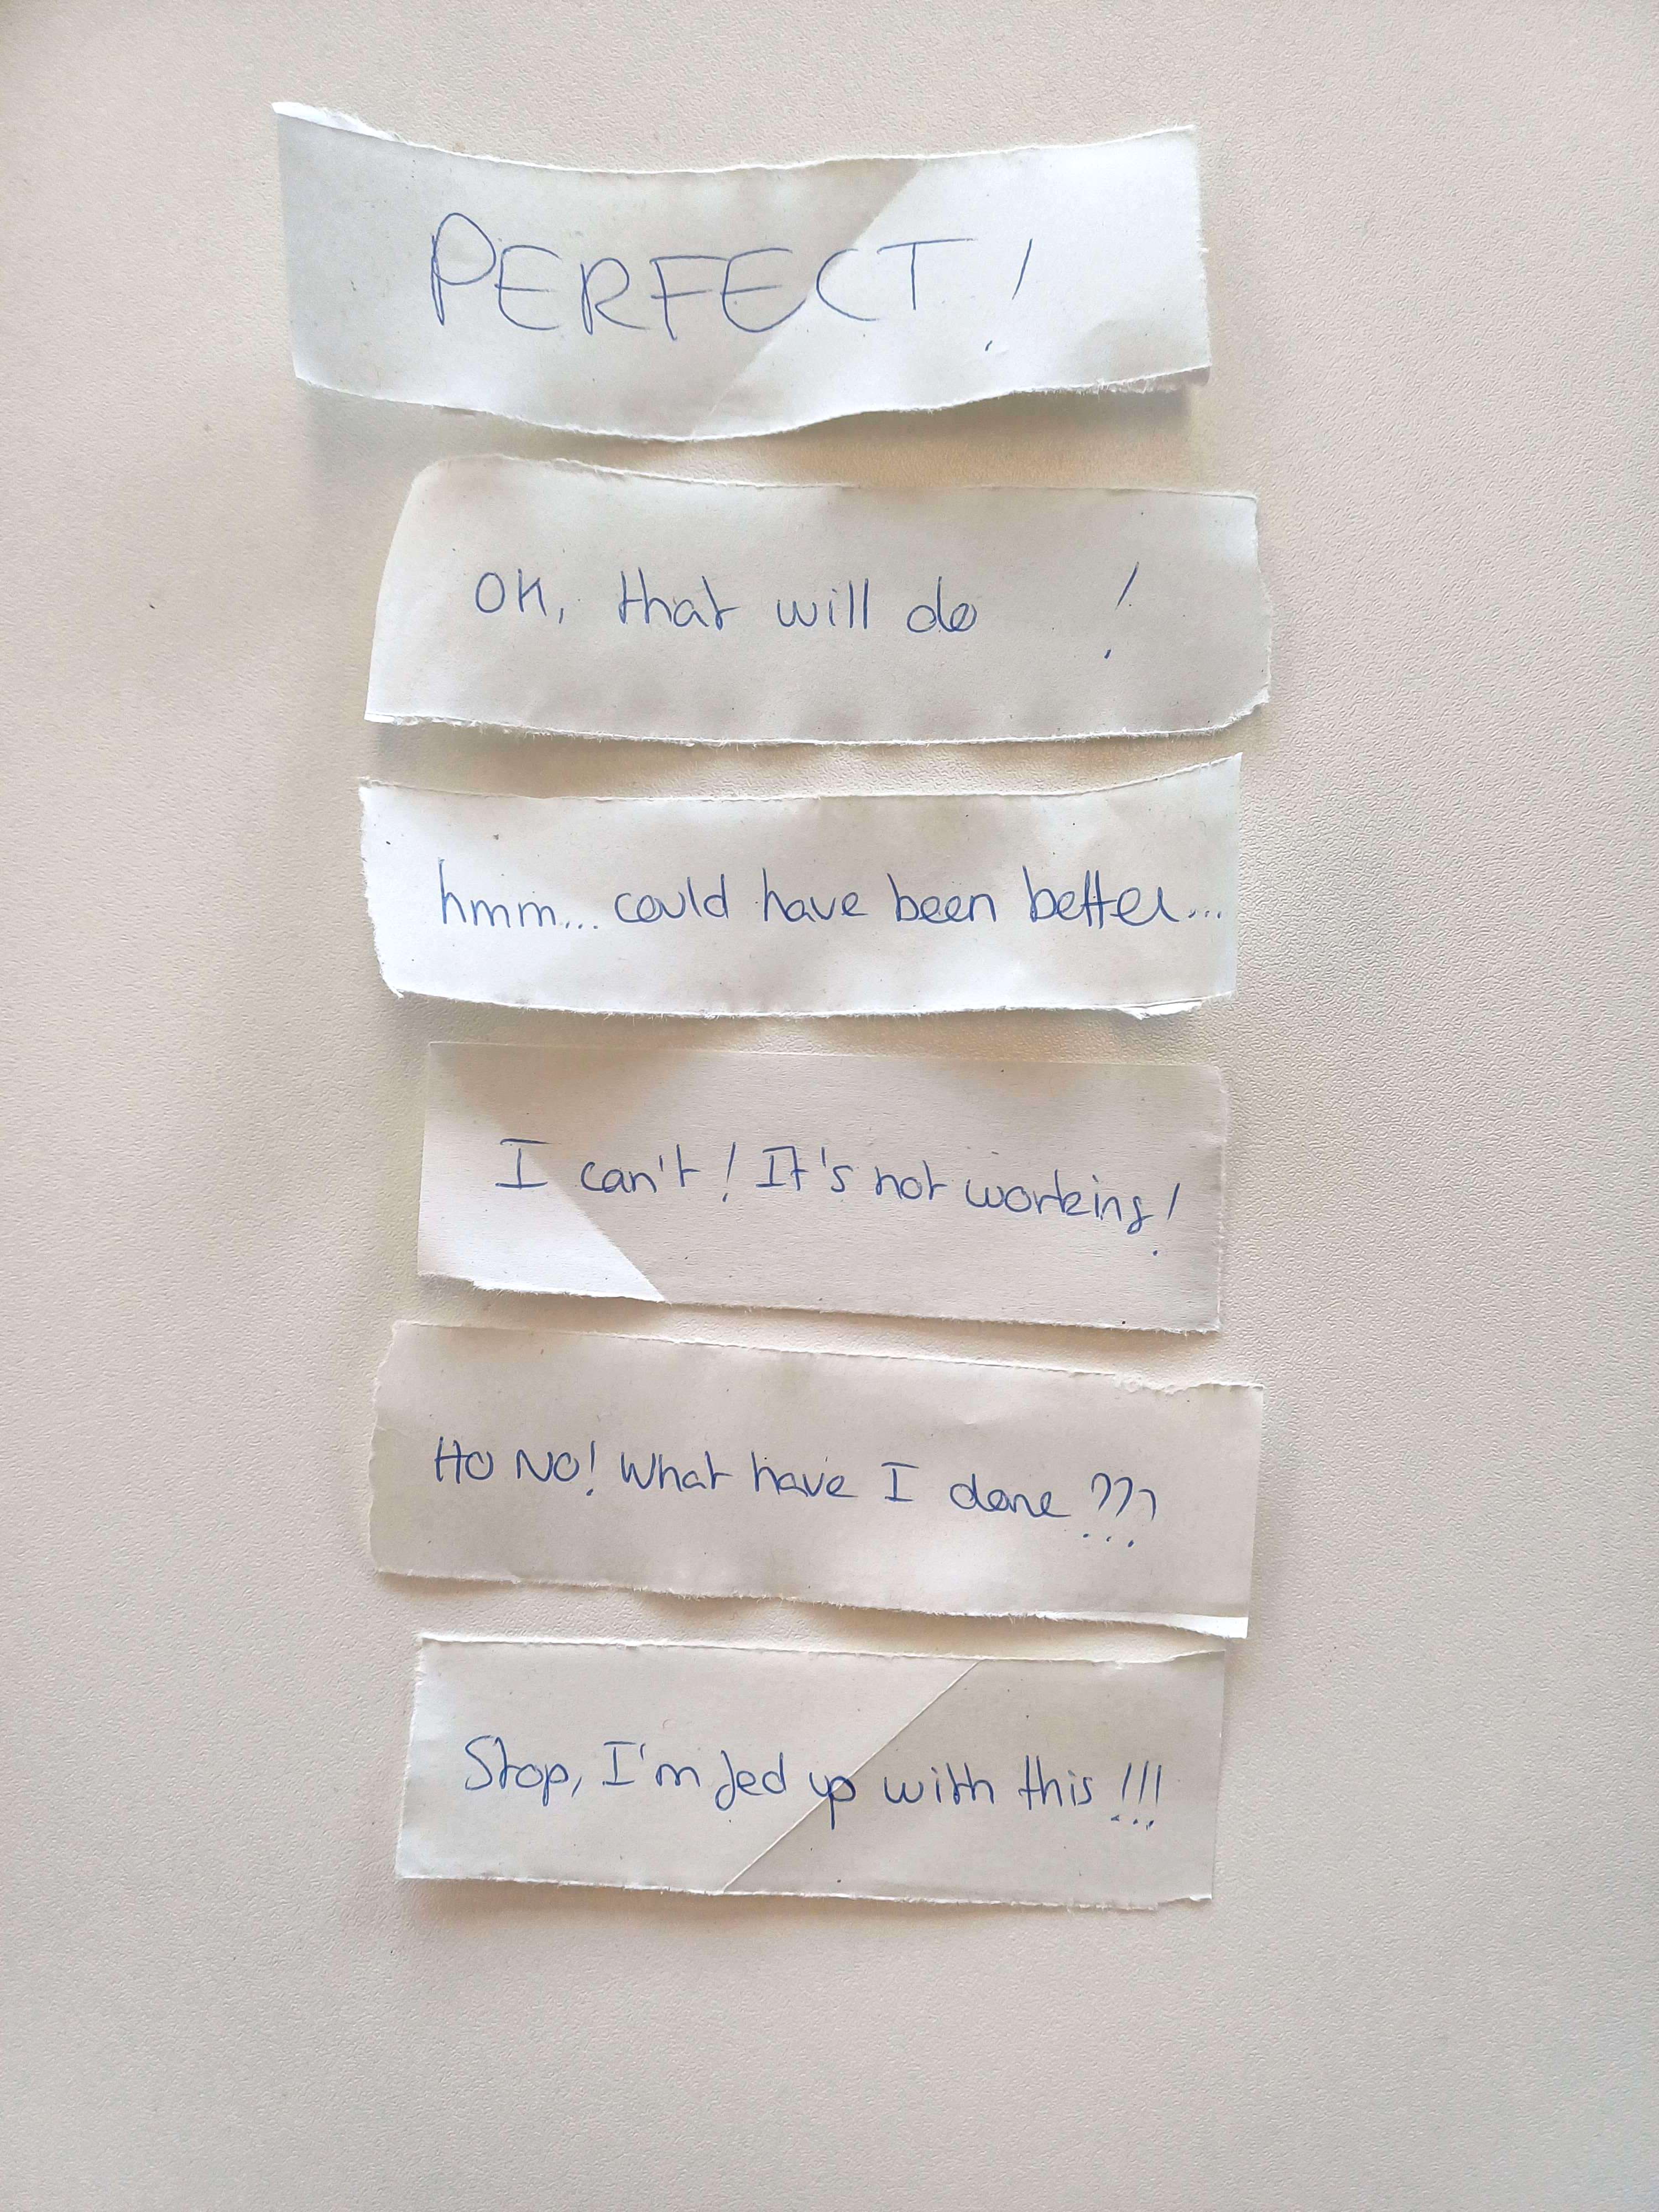 PERFECT!
OK, that will do !
hmm... could have been better...
I can't! It's not working!
HO NO! What have I done ???
Stop, I'm fed up with this !!!